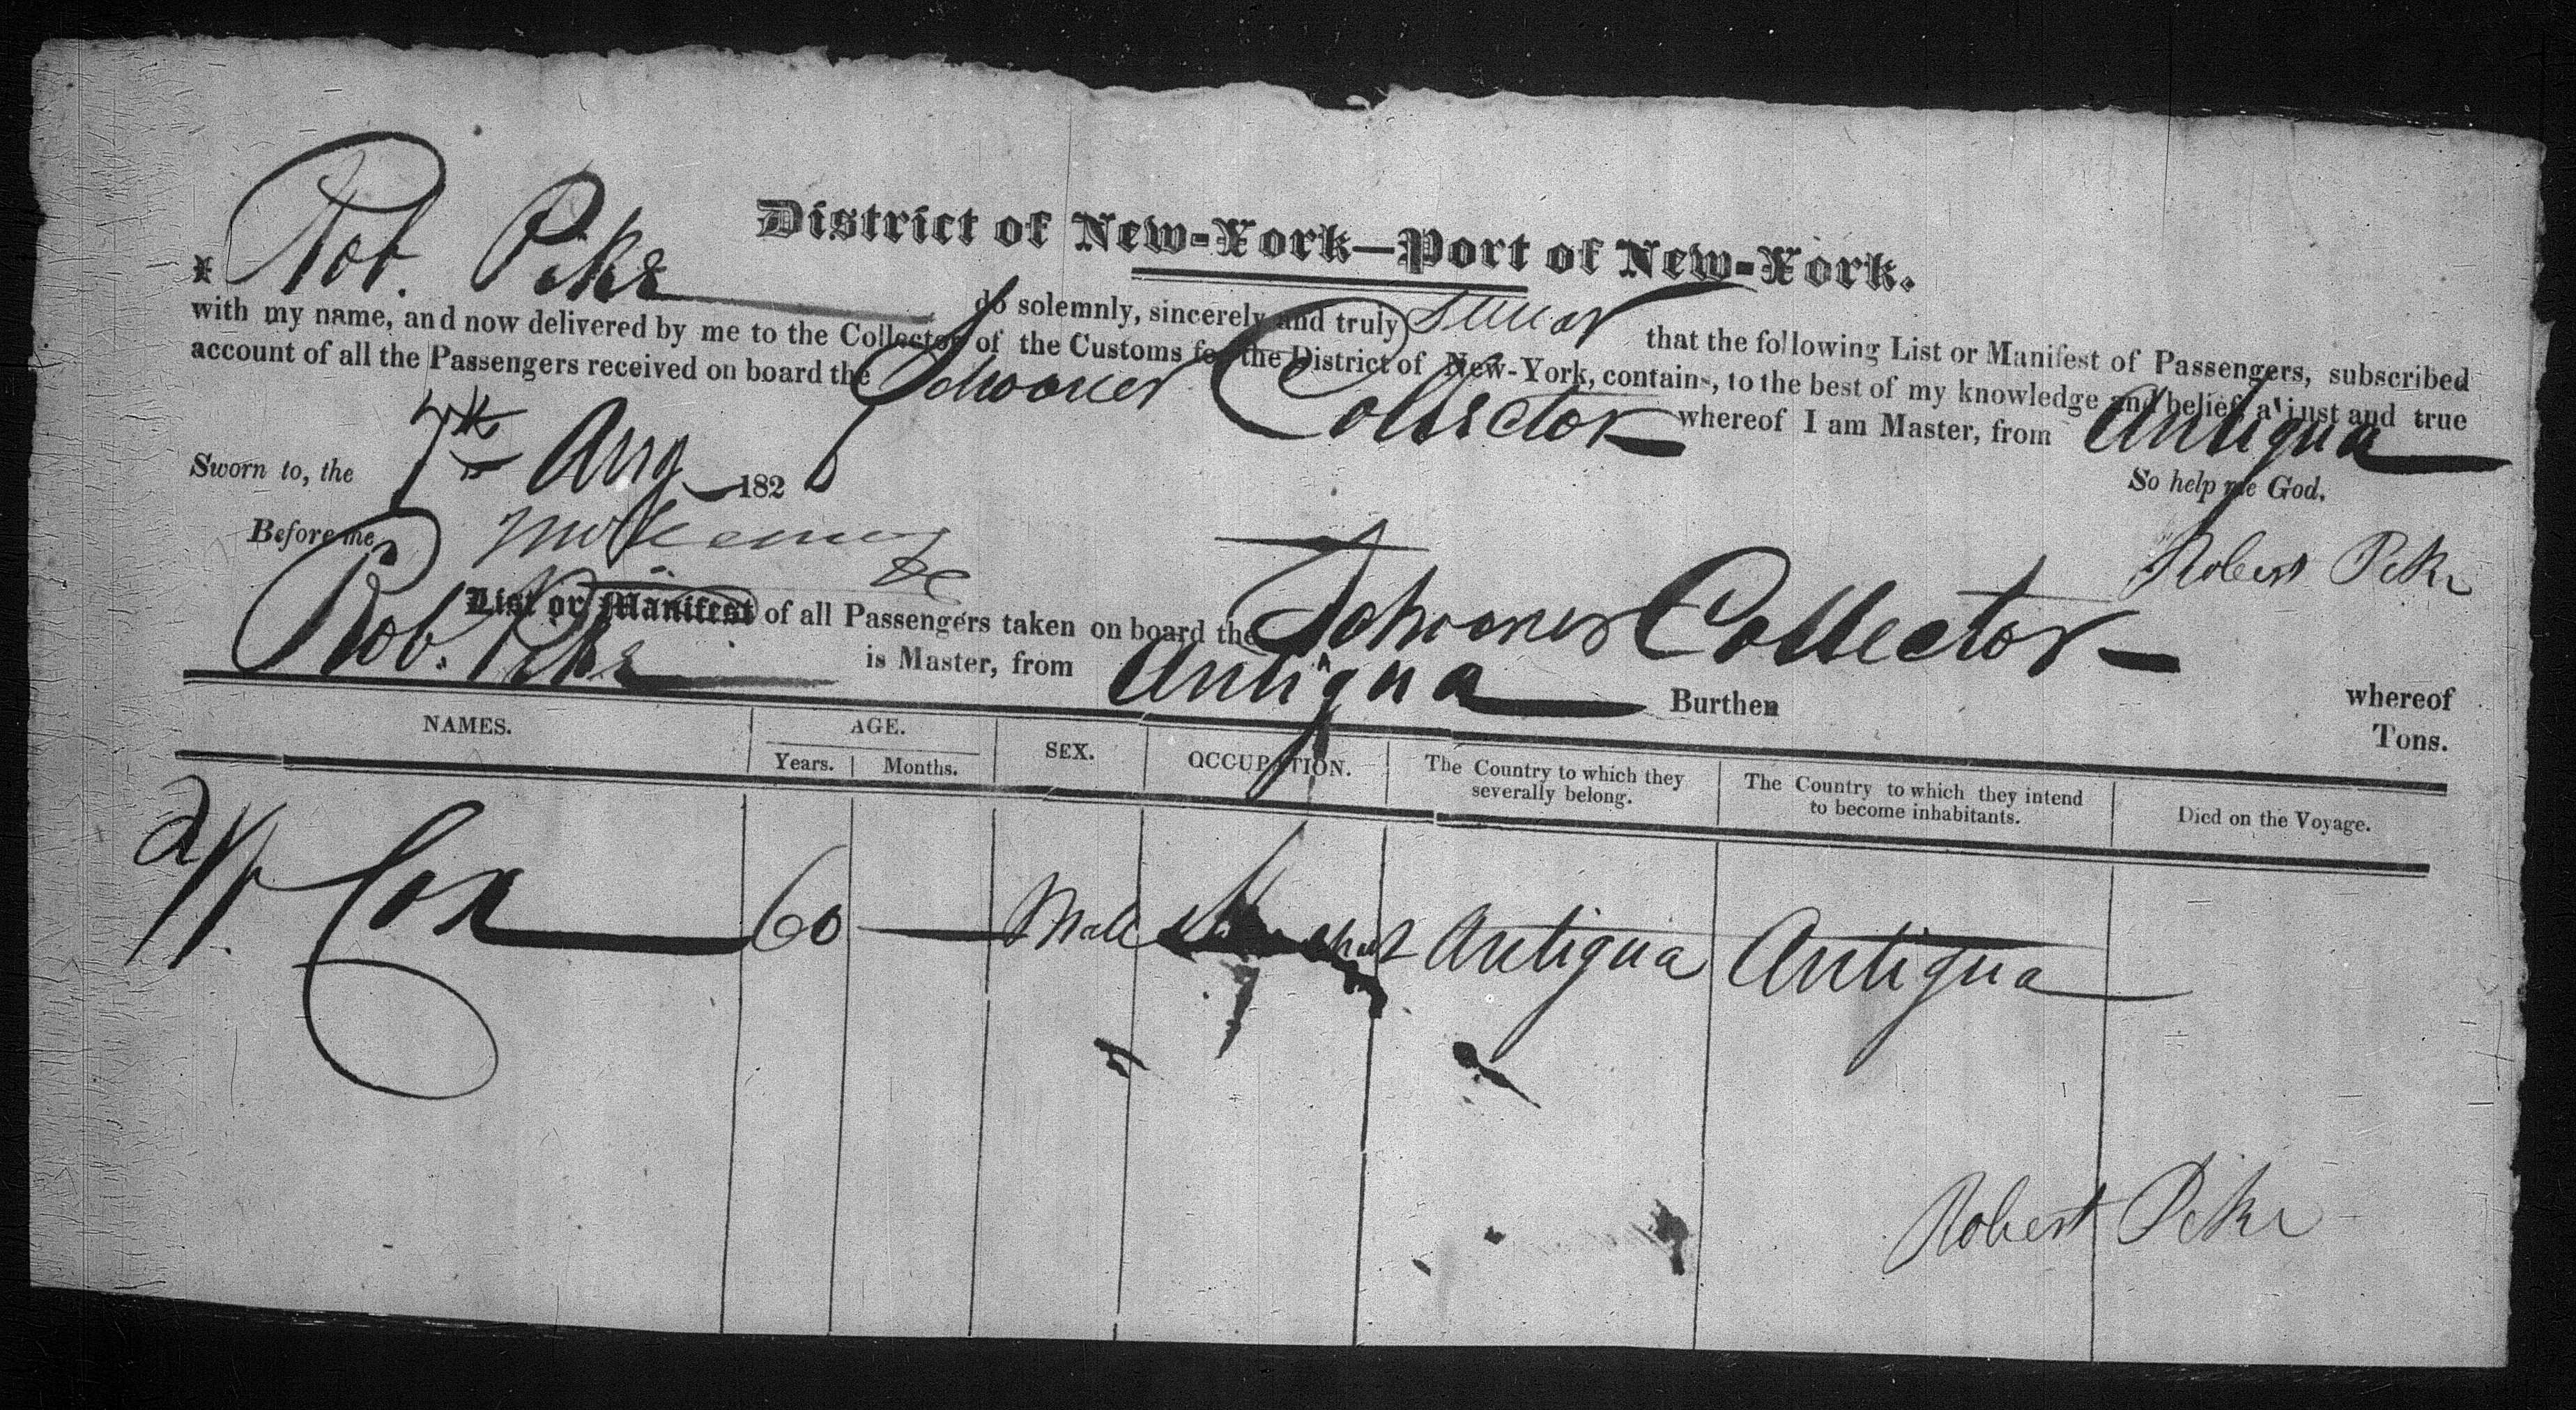 District of New-York—Port of New-York.
I Rob. Pike do solemnly, sincerely and truly swear that the following List or Manifest of Passengers, subscribed
with my name, and now delivered by me to the Collector of the Customs for the District of New-York, contains, to the best of my knowledge and belief, a just and true
account of all the Passengers received on board the Schooner Collector whereof I am Master, from Antigua
Sworn to, the 7th Aug 182
So help me God.
Before me,
Robert Pike
List or Manifest of all Passengers taken on board the Schooner Collector whereof
Rob. Pike is Master, from Antigua Burthen Tons.
NAMES. AGE. SEX. OCCUPATION. The Country to which they severally belong. The Country to which they intend to become inhabitants. Died on the Voyage.
Years. Months.
W. Cox 60 — Male Antigua Antigua
Robert Pike